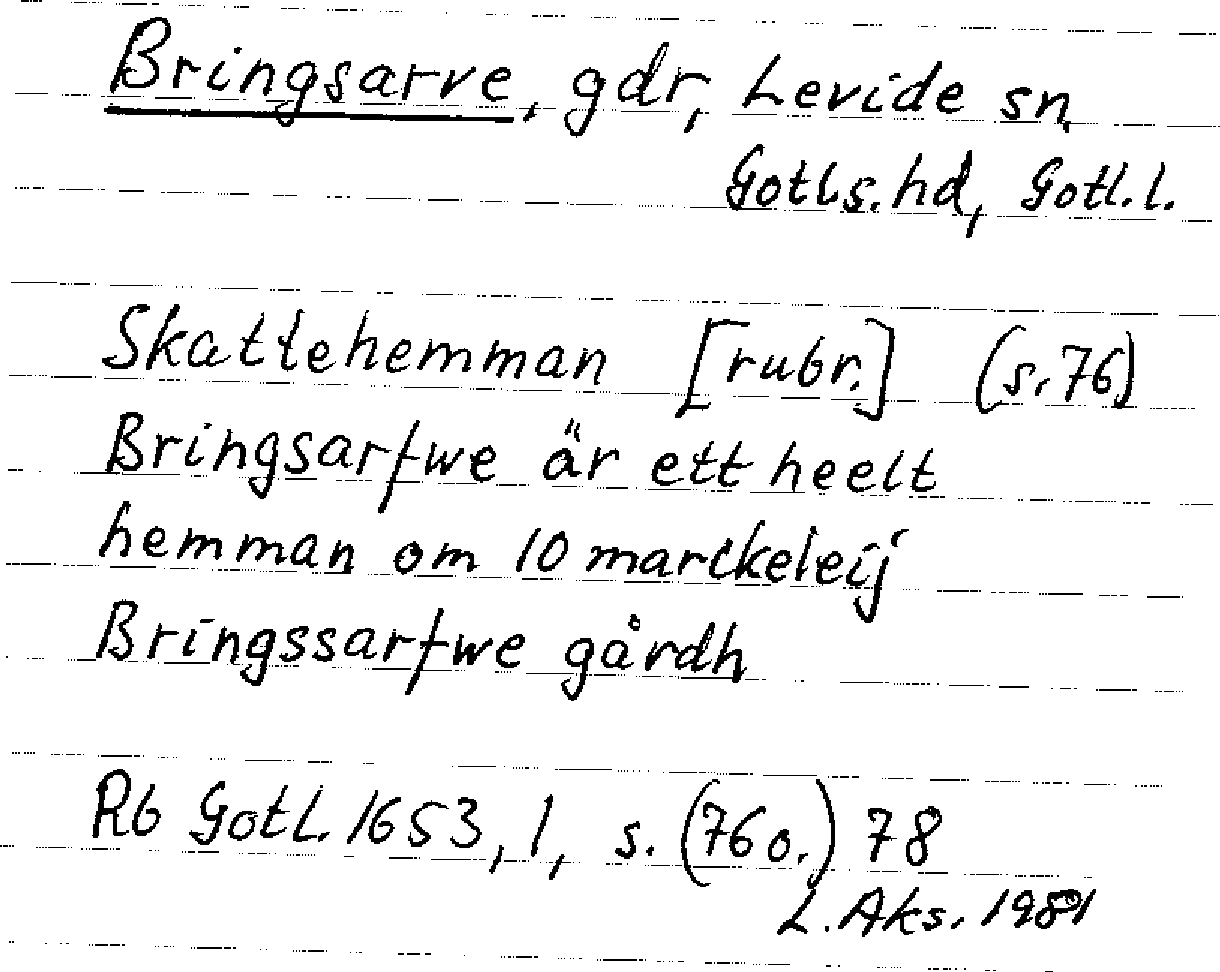 Bringsarve, gdr, Levide sn,
Gotls. hd, Gotl. l.
Skattehemman [rubr.] (s. 76)
Bringsarfwe är ett heelt
hemman om 10 marckeleij
Bringssarfwe gårdh
Rb Gotl. 1653, 1, s. (76 o.) 78
L. Aks. 1981